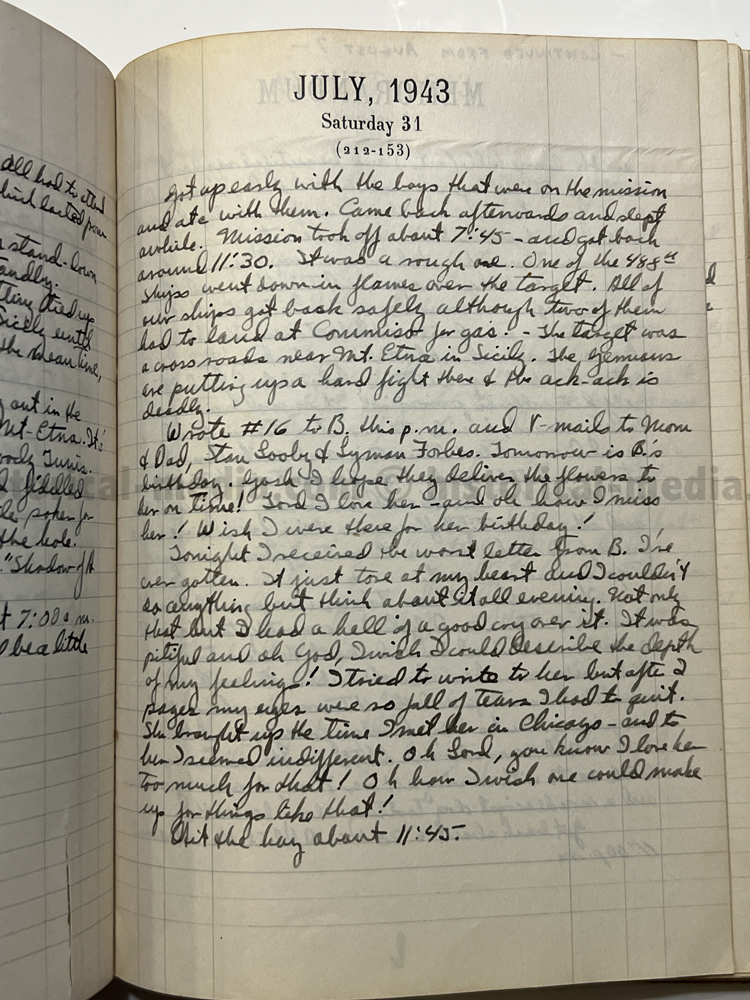 - CONTINUED FROM AUGUST 7 -
all had to attend
which lasted from
stand-down
standby.
tied up
Sicily until
the mean time,
out in the
Mt-Etna. It's
Tunis.
fiddled
poker for
the hole.
"Shadow of A
at 7:00 a.m.
be a little
JULY, 1943
Saturday 31
(212-153)
Got up early with the boys that were on the mission
and ate with them. Came back afterwards and slept
awhile. Mission took off about 7:45 - and got back
around 11:30. It was a rough one. One of the 488th
ships went down in flames over the target. All of
our ships got back safely although two of them
had to land at Commiso for gas. - The target was
a cross roads near Mt. Etna in Sicily. The Germans
are putting up a hard fight there & the ack-ack is
deadly.
Wrote #16 to B. this p.m. and V-mails to Mom
& Dad, Stan Looby & Lyman Forbes. Tomorrow is B.'s
birthday. Gosh I hope they deliver the flowers to
her on time! Lord I love her - and oh how I miss
her! Wish I were there for her birthday!
Tonight I received the worst letter from B. I've
ever gotten. It just tore at my heart and I couldn't
do anything but think about it all evening. Not only
that but I had a hell of a good cry over it. It was
pitiful and oh God, I wish I could describe the depth
of my feeling! I tried to write to her but after 2
pages my eyes were so full of tears I had to quit.
She brought up the time I met her in Chicago - and to
her I seemed indifferent. Oh Lord, you know I love her
too much for that! Oh how I wish one could make
up for things like that!
Hit the hay about 11:45.